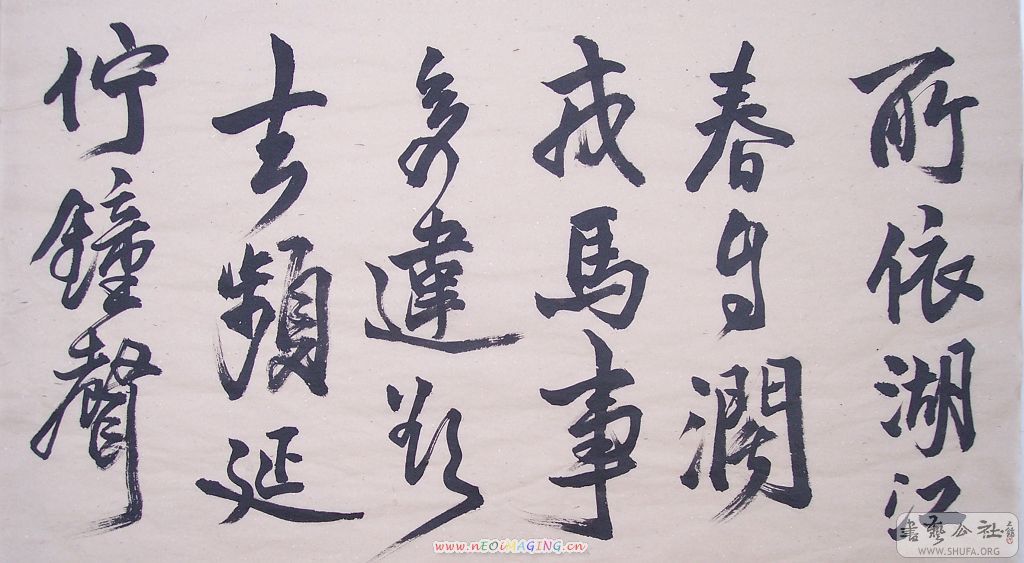 所依湖江
春濶
戎馬事
多違欲
去頻延
佇鐘聲
www.nEOiMAGING.cn
書藝公社
WWW.SHUFA.ORG